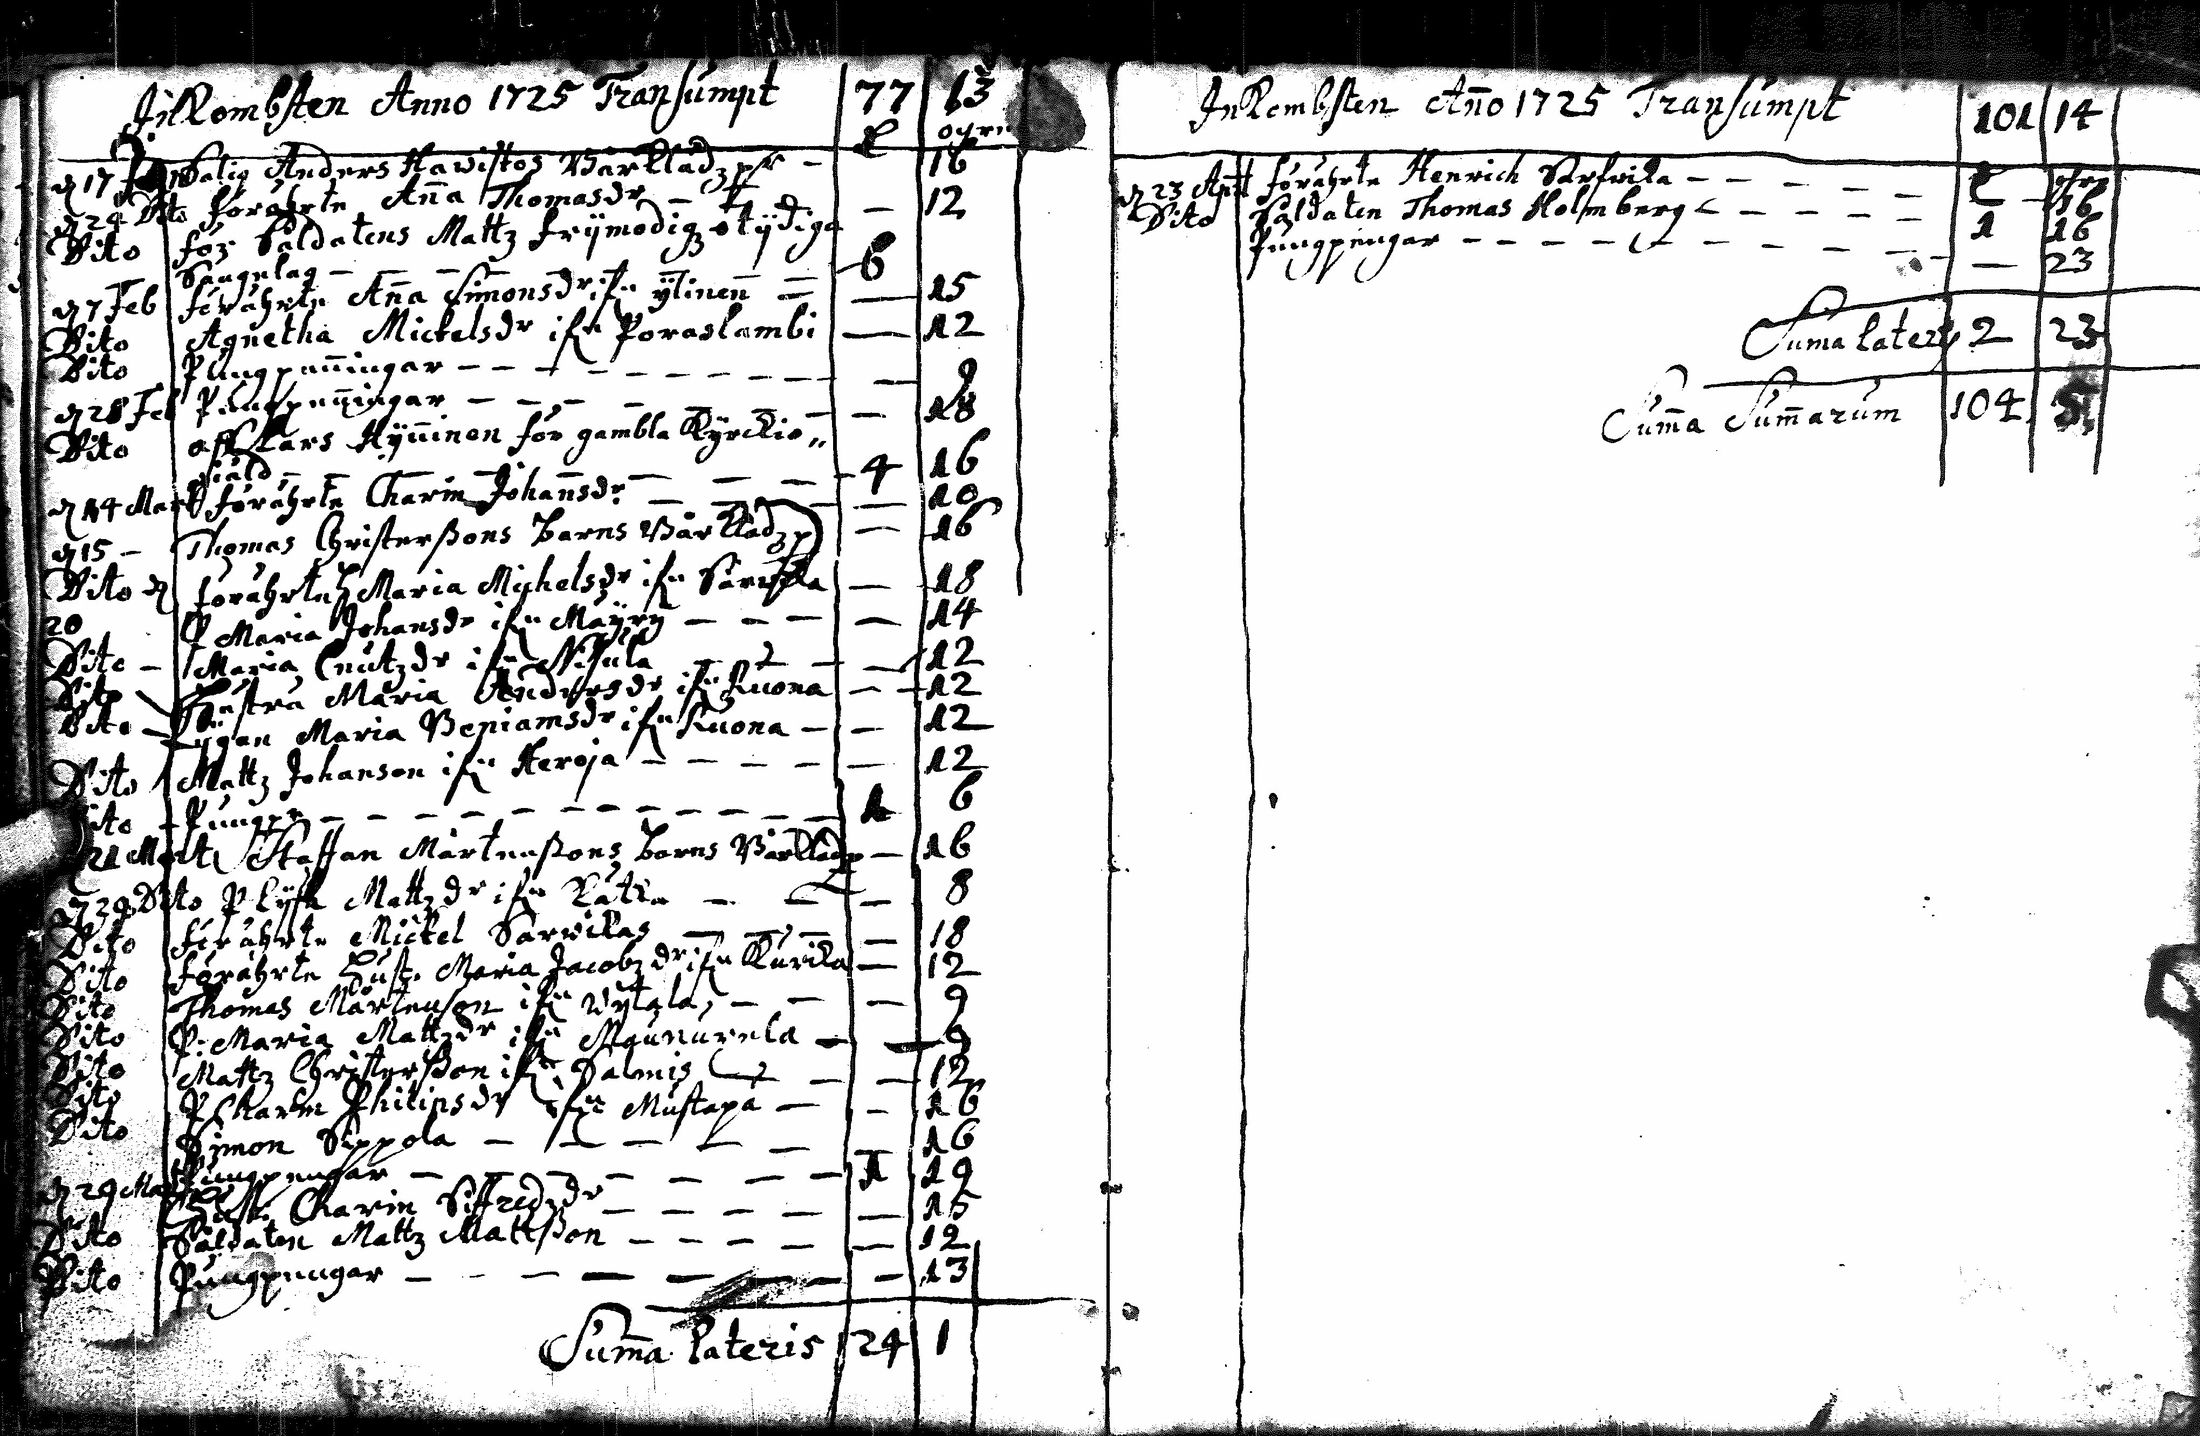 Inkombsten Anno 1725 Transumpt 77 13
öyrn
d 17 Jan Salig Anders Hawistos Wärkladz p — 16
d 24 Dito förährte Anna Thomasdr — — 12
Dito för Saldatens Mattz frijmodigz otijdiga
Sängelag — — — — 6
d 7 Feb förährte Anna Simonsdr ifrn ylinen — 15
Dito Agnetha Mickelsdr ifrn Poraslambi — 12
Dito Pungpenningar — — — 9
d 28 Feb Pungpenningar — — — 18
Dito aff Lars Hynninen för gambla Kyrckio„
giäld — — — 4 16
d 14 Mart förährte Charin Johansdr — — 10
d 15 — Thomas Christerßons Barns Wårkladz p — 16
Dito d förährte H Maria Michelsdr ifrn — 18
20 P Maria Johansdr ifrn Mäyry — — — 14
Dito — Maria Cnutzdr ifrn Nisula — — 12
Dito Hustru Maria Andersdr ifrn Kuona — — 12
Dito — Pigan Maria Beniamsdr ifrn Kuona — — 12
Dito Mattz Johanson ifrn Heroja — — — 12
Dito — Pungpr — — — 1 6
d 21 Marti Staffan Mårtenßons Barns Wårkladz p — 16
d 29 Dito P Lysa Mattzdr ifrn — — 8
Dito förährte Mickel Särwikas — — — 18
Dito förährte Hust. Maria Jacobzdr ifrn Kurika — 12
Dito Thomas Mårtenson ifrn — — — 9
Dito P. Maria Mattzdr ifrn Maunurela — — 9
Dito Mattz Christerßon ifrn Salmis — — 12
Dito P Charin Philipsdr ifrn Mustapä — — 16
Dito Simon Sippola — — — 16
Pungpengar — — — 1 19
d 29 Mart Hust. Charin Siffredzdr — — — 15
Dito Saldaten Mattz Mattßon — — — 12
Dito Pungpengar — — — 13
Summa lateris 24 1
Inkombsten Anno 1725 Transumpt 101 14
d 23 Aprl förährte Henrich Särfwika — — — 16
Dito Saldaten Thomas Holmberg — — — 1 16
Pungpengar — — — 23
Suma lateris 2 23
Summa Summarum 104 5